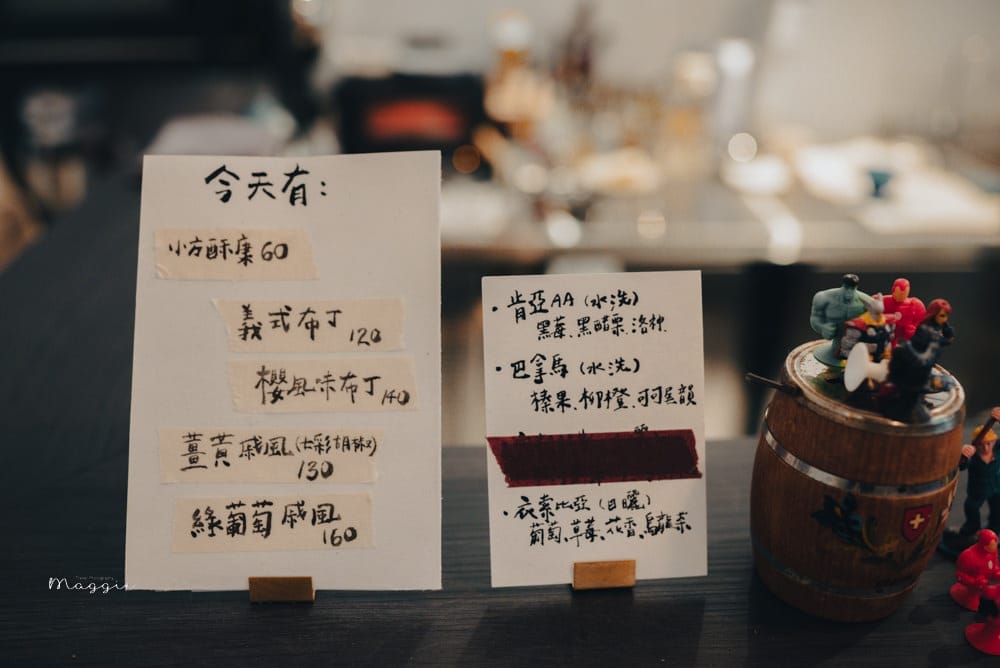 今天有:
小方酥糜 60
義式布丁 120
櫻風味布丁 140
薑黃戚風(七彩胡椒) 130
綠葡萄戚風 160
・肯亞AA(水洗)
黑莓、黑醋栗、洛神
・巴拿馬(水洗)
榛果、柳橙、可可尾韻
・衣索比亞(日曬)
葡萄、草莓、花香、烏龍茶
Maggie